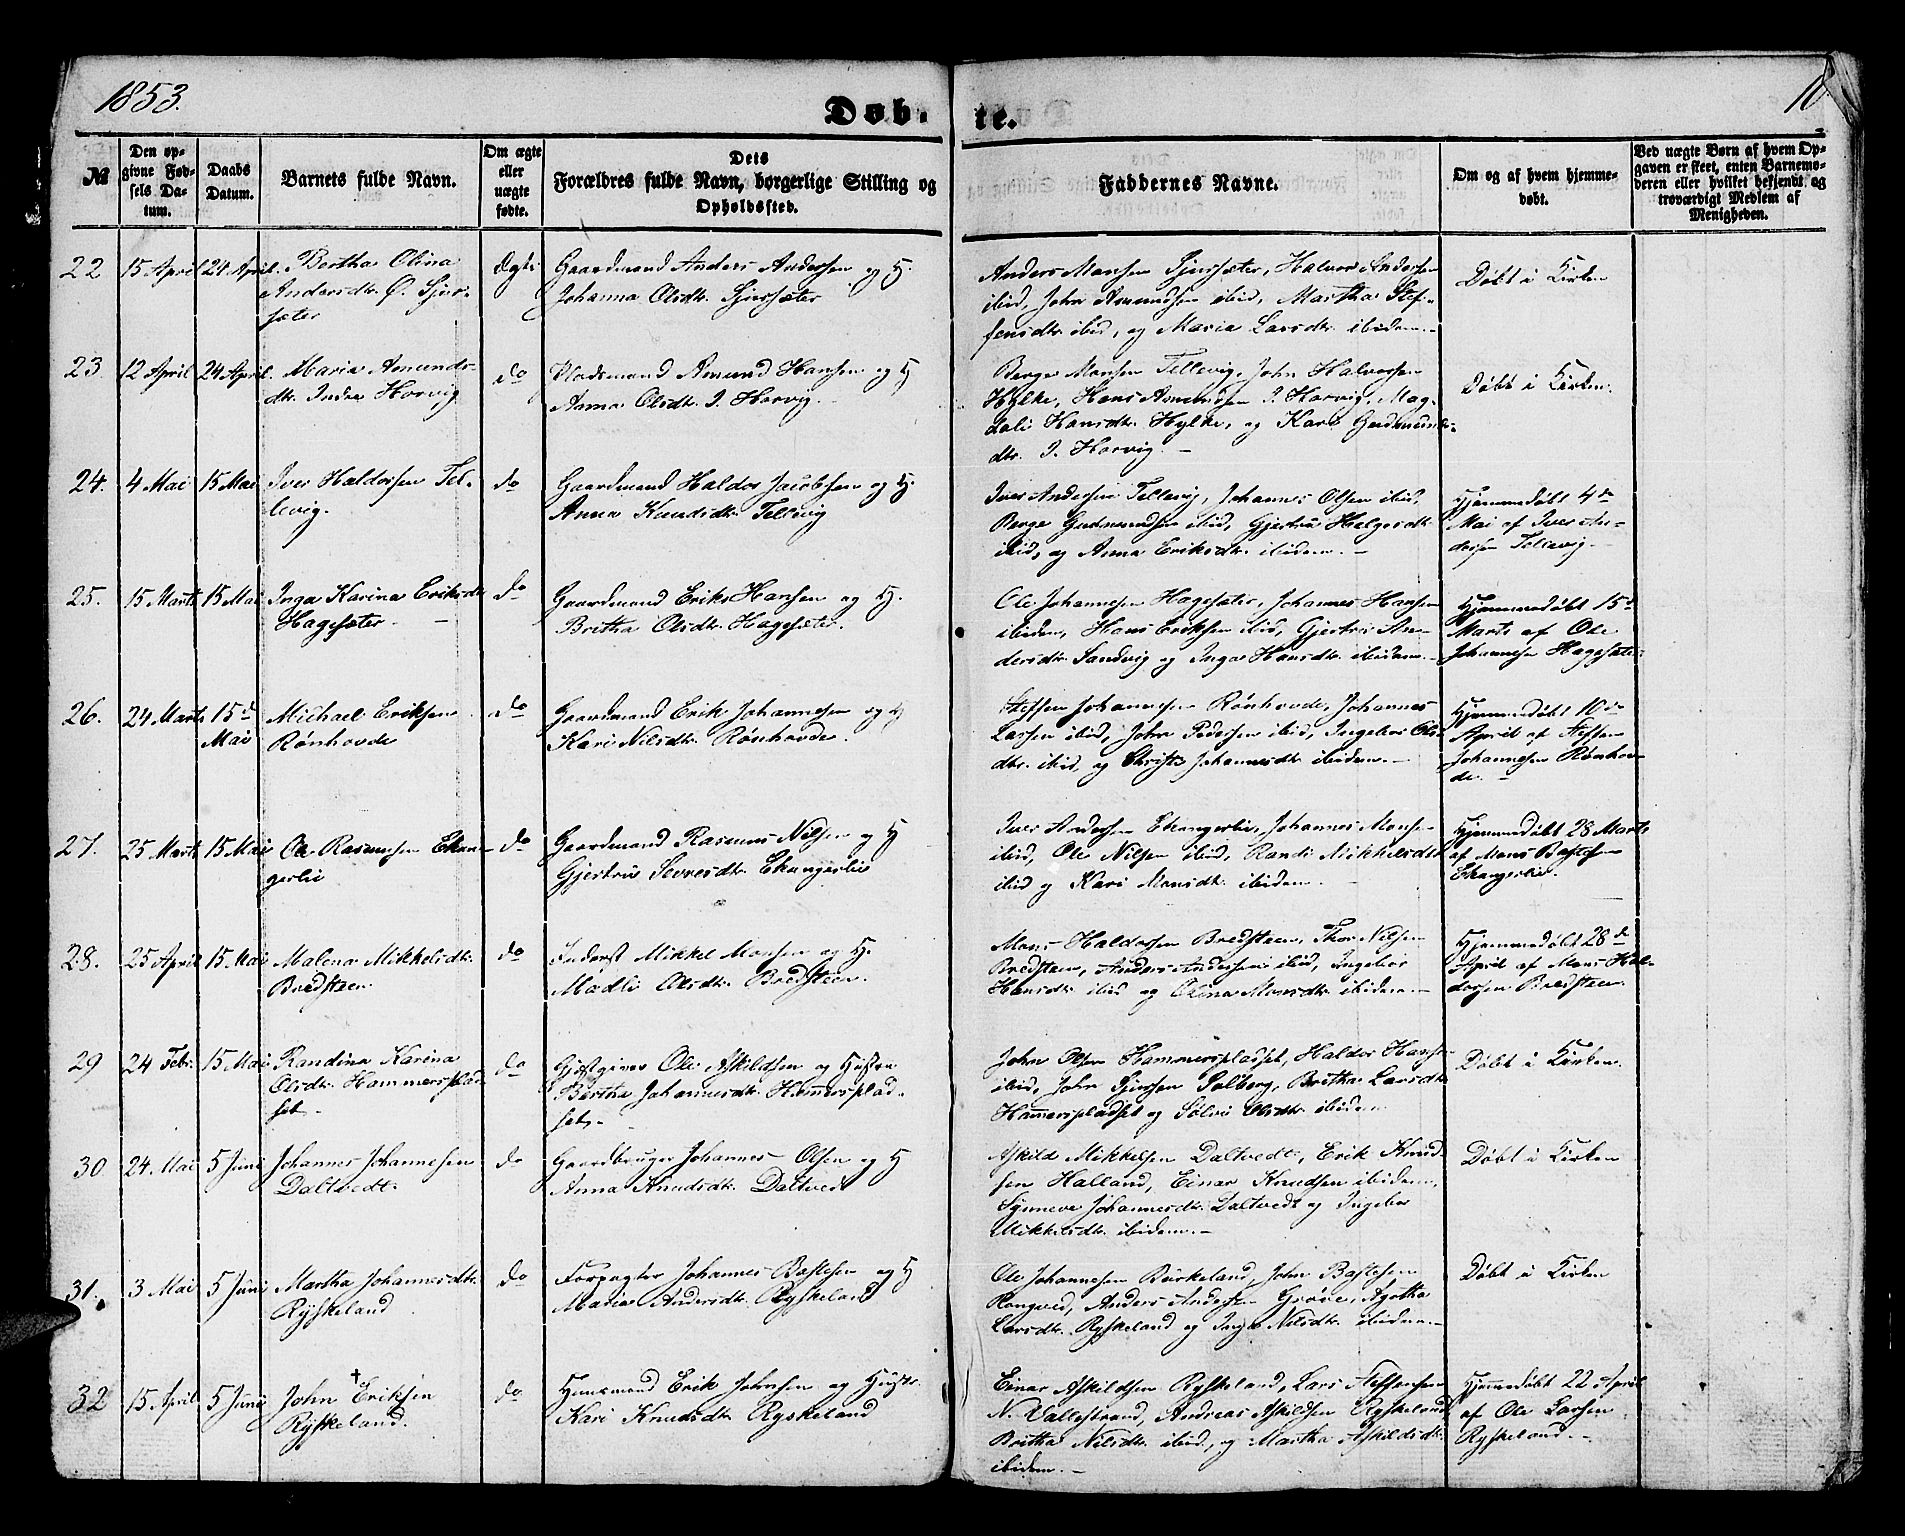 1853.
Døb-
te.
10
№
Den op-
givne Fød-
sels Da-
tum.
Daabs
Datum.
Barnets fulde Navn.
Om ægte
eller
uægte
fødte.
Dets
Forældres fulde Navn, borgerlige Stilling og
Opholdssted.
Faddernes Navne.
Om og af hvem hjemme-
døbt.
Ved uægte Børn af hvem Op-
gaven er skeet, enten Barnemo-
deren eller hvilket bekjendt og
troværdigt Medlem af
Menigheden.
22
15 April
24 April.
Bertha Olina
Andersdtr. Ø. Sjur-
sæter
Ægte
Gaardmand Anders Andersen og H.
Johanna Olsdtr. Sjursæter
Anders Monsen Sjursæter, Halvor Andersen
ibid, John Amundsen ibid, Martha Stef-
fensdtr ibid, og Maria Larsdtr. ibidem.-
Døbt i Kirken
23
12 April
24 April.
Maria Amunds-
dtr. Indre Horvig
do
Pladsmand Amund Hansen og H
Anna Olsdtr. I. Horvig.
Berge Monsen Tellevig, John Halvorsen
Hylke, Hans Amundsen I. Horvig, Mag-
dali Hansdtr. Hylke, og Kari Gudmunds-
dtr. I. Horvig. -
Døbt i Kirken.
24.
4 Mai
15 Mai
Iver Haldorsen Tel-
levig.
do
Gaardmand Haldor Jacobsen og H.
Anna Knudsdtr. Tellevig
Iver Andersen Tellevig, Johannes Olsen ibid,
Berge Gudmundsen ibid, Gjertrui Helgesdtr
ibid, og Anna Eriksdtr. ibidem. -
Hjemmedøbt 4de
Mai af Iver An-
dersen Tellevig.
25.
15 Marts
15 Mai
Inga Karina Eriksdtr
Hagesæter. -
do
Gaardmand Erik Hansen og H.
Britha Olsdtr. Hagesæter.
Ole Johannesen Hagesæter, Johannes Hansen
ibidem, Hans Eriksen ibid, Gjertrui An-
dersdtr. Sandvig og Inga Hansdtr. ibidem.-
Hjemmedøbt 15de
Marts af Ole
Johannesen Hagesæter
26.
24 Marts
15d
Mai
Michael Eriksen
Rønhovde
do
Gaardmand Erik Johannesen og H
Kari Nilsdtr. Rønhovde.
Steffen Johannesen Rønhovde, Johannes
Larsen ibid, John Pedersen ibid, Ingebor Ols-
dtr. ibid, og Christi Johannesdtr. ibidem. -
Hjemmedøbt 10de
April af Steffen
Johannesen Rønhov-
de. -
27.
25 Marts
15 Mai
Ole Rasmusen Ekan-
gerlie
do
Gaardmand Rasmus Nilsen og H
Gjertrui Sevresdtr. Ekangerlie
Iver Andersen Ekangerlie, Johannes Monsen
ibid, Ole Nilsen ibid, Randi Mikkelsdtr.
ibid og Kari Monsdtr. ibidem.
Hjemmedøbt 28 Marts
af Mons Bastesen
Ekangerlie.
28.
25 April
15 Mai
Malena Mikkelsdtr.
Bredsteen.
do
Inderst Mikkel Monsen og H.
Madli Olsdtr. Bredsteen.
Mons Haldorsen Bredsteen, Thor Nilsen
Bredsteen, Anders Andersen ibid, Ingebor
Hansdtr. ibid og Olina Monsdtr. ibidem. -
Hjemmedøbt 28de
April af Mons Hal-
dorsen Bredsteen.
29
24 Febr.
15 Mai
Randina Karina
Olsdtr. Hammersplad-
set -
do
Gjæstgiver Ole Askildsen og Hustru
Bertha Johannesdtr. Hamersplad-
set. -
John Olsen Hammerspladset, Haldor Hansen
ibid, John Sjursen Solberg, Britha Larsdtr.
Hamerspladset og Sølvi Olsdtr. ibidem
Døbt i Kirken.
30
24. Mai
5 Juni
Johannes Johannesen
Daltvedt.
do
Gaardbruger Johannes Olsen og H
Anna Knudsdtr. Daltvedt
Askild Mikkelsen Daltvedt, Erik Knud-
sen Halland, Einar Knudsen ibidem,
Synneve Johannesdtr. Daltvedt og Ingebor
Mikkelsdtr. ibidem. -
Døbt i Kirken
31.
3 Mai
5 Juni
Martha Johannesdtr.
Ryskeland
do
Forpagter Johannes Bastesen og H
Maria Andersdtr. Ryskeland
Ole Johannesen Birkeland, John Bastesen
Rongved, Anders Andersen Grøve, Agatha
Larsdtr. Ryskeland og Inga Nilsdtr. ibidem.-
Døbt i Kirken
32
15 April
5 Juni
John † Eriksen
Ryskeland.
do
Huusmand Erik Johnsen og Hustr.
Kari Knudsdtr. Ryskeland
Einar Askildsen Ryskeland, Lars Steffensen
N. Vallestrand, Andreas Askildsen Ryskeland,
Britha Nilsdtr. ibid, og Martha Askildsdtr.
ibidem. -
Hjemmedøbt 22 April
af Ole Larsen
Ryskeland. -